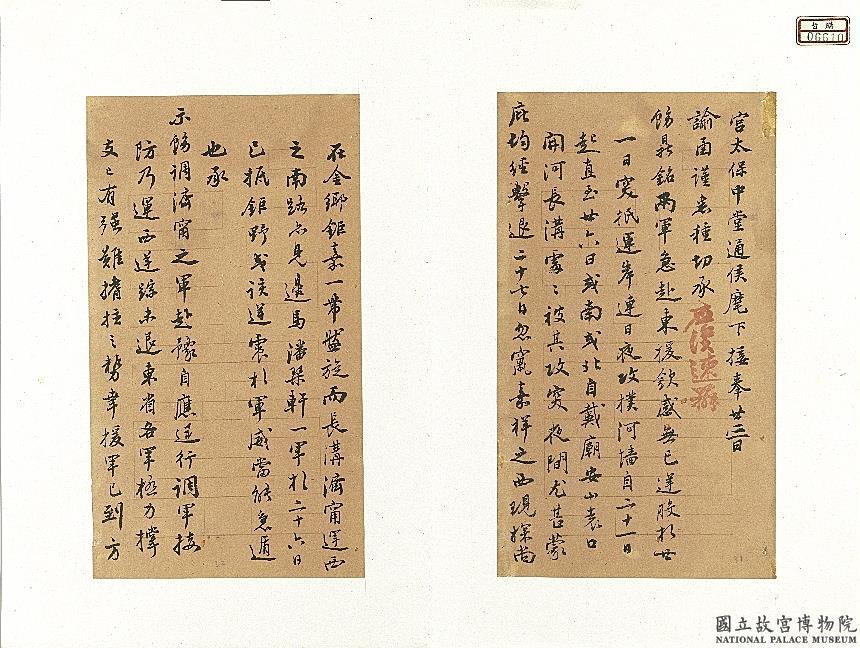 宮太保中堂通侯麾下接奉廿三日
諭函謹悉種切承
飭鼎銘兩軍急赴東援欽感無已逆股於廿
一日突抵運岸連日夜攻撲河墻自二十一日
起直至廿六日或南或北自戴廟安山袁口
開河長溝處處被其攻突夜間尤甚蒙
庇均經擊退二十七日忽竄嘉祥之西現探尚
在金鄉鉅嘉一帶盤旋而長溝濟甯運西
之南路亦見邊馬潘琹軒一軍於二十六日
已抵鉅野或該逆震於軍威當能急遁
也承
示飭調濟甯之軍赴豫自應遵行調軍接
防乃運西逆踪未退東省各軍極力撐
支已有強難撐拄之勢幸援軍已到方
應復速辦
院 06610
國立故宮博物院
NATIONAL PALACE MUSEUM